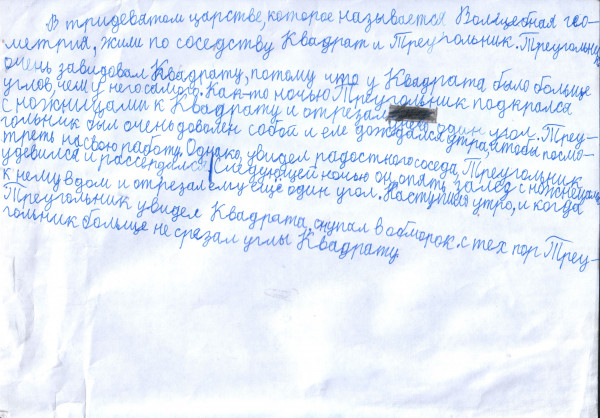 В тридевятом царстве, которое называется Волшебная гео-
метрия, жили по соседству Квадрат и Треугольник. Треугольник
очень завидовал Квадрату, потому что у Квадрата было больше
углов, чем у него самого. Как-то ночью Треугольник подкрался
с ножницами к Квадрату и отрезал один угол. Треу-
гольник был очень доволен собой и еле дождался утра, чтобы посмо-
треть на свою работу. Однако, увидел радостного соседа, Треугольник
удивился и рассердился. Следующей ночью он опять залез с ножницами
к нему в дом и отрезал ему еще один угол. Наступило утро, и когда
Треугольник увидел Квадрата, он упал в обморок. с тех пор Треу-
гольник больше не срезал углы Квадрату.